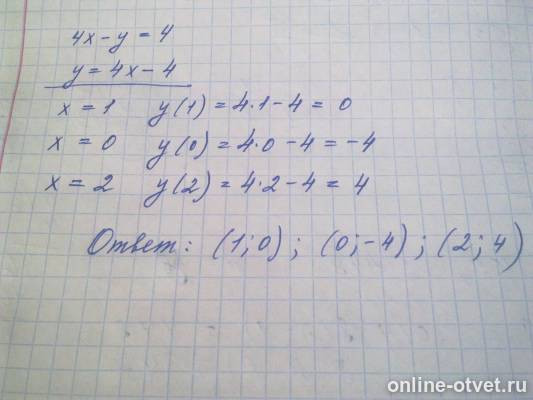 4x - y = 4
y = 4x - 4
x = 1 y(1) = 4·1 - 4 = 0
x = 0 y(0) = 4·0 - 4 = -4
x = 2 y(2) = 4·2 - 4 = 4
Ответ: (1;0); (0;-4); (2;4)
online-otvet.ru